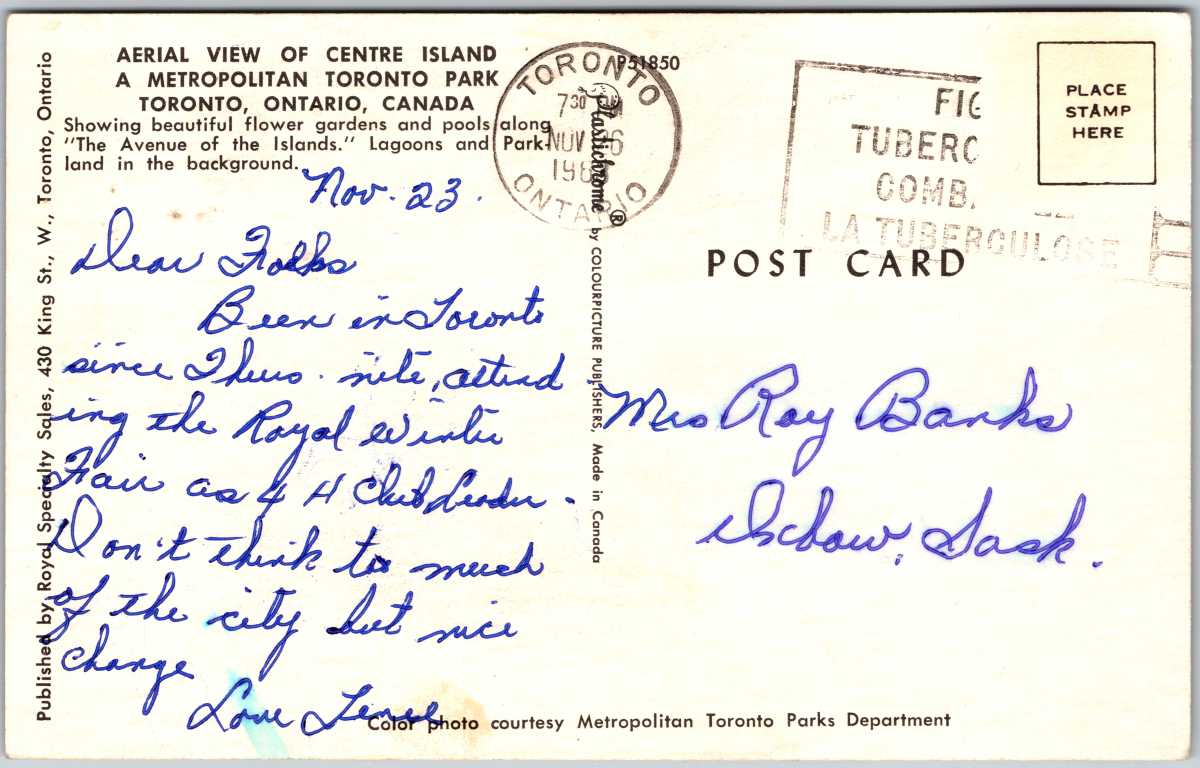 AERIAL VIEW OF CENTRE ISLAND
A METROPOLITAN TORONTO PARK
TORONTO, ONTARIO, CANADA
Showing beautiful flower gardens and pools along
"The Avenue of the Islands." Lagoons and Park-
land in the background.
Nov. 23.
Dear Folks
Been in Toronto
since Thurs. nite, attend
ing the Royal Winter
Fair as 4 H Club Leader -
Don't think too much
of the city but nice
change
Love
Color photo courtesy Metropolitan Toronto Parks Department
Published by Royal Specialty Sales, 430 King St., W., Toronto, Ontario
P51850
Plastichrome ® by COLOURPICTURE PUBLISHERS, Made in Canada
TORONTO
730
NOV 26
ONTARIO
TUBERC
COMB
LA TUBERCULOSE
PLACE
STAMP
HERE
POST CARD
Mrs Roy Banks
Sask.